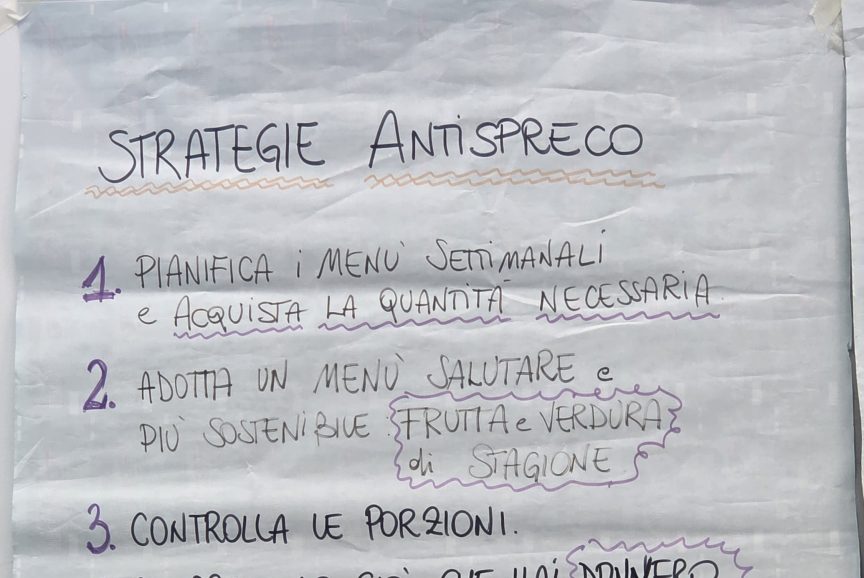 STRATEGIE ANTISPRECO
1. PIANIFICA i MENÙ SETTIMANALI
e ACQUISTA LA QUANTITÀ NECESSARIA
2. ADOTTA UN MENÙ SALUTARE e
PIÙ SOSTENIBILE. FRUTTA e VERDURA
di STAGIONE
3. CONTROLLA LE PORZIONI.
CHE HAI DAVVERO